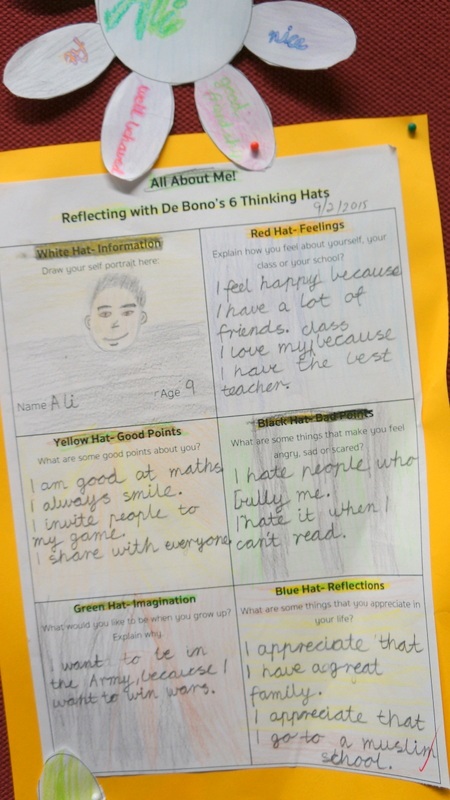 Ali
nice
well behaved
good
All About Me!
Reflecting with De Bono's 6 Thinking Hats
9/2/2015
White Hat- Information
Draw your self portrait here:
Name Ali
Age 9
Red Hat- Feelings
Explain how you feel about yourself, your
class or your school?
I feel happy because
I have a lot of
friends. class
I love my, because
I have the best
teacher.
Yellow Hat- Good Points
What are some good points about you?
I am good at maths
I always smile.
I invite people to
my game.
I share with everyone
Black Hat- Bad Points
What are some things that make you feel
angry, sad or scared?
I hate people who
bully me.
I hate it when I
can't read.
Green Hat- Imagination
What would you like to be when you grow up?
Explain why.
I want to be in
the Army, because I
want to win wars.
Blue Hat- Reflections
What are some things that you appreciate in
your life?
I appreciate that
I have a great
family.
I appreciate that
I go to a muslim
school.